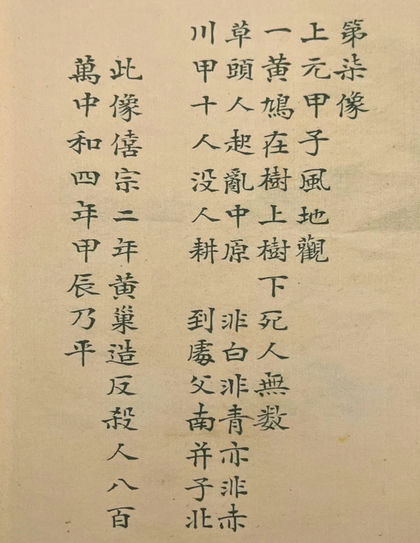 第柒像
上元甲子風地觀
一黄鳩在樹上樹下死人無数
草頭人起亂中原 非白非青亦非赤
川甲十人没人耕 到處父南并子北
此像僖宗二年黄巢造反殺人八百
萬中和四年甲辰乃平